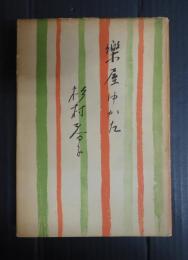 楽屋ゆかた
杉村春子